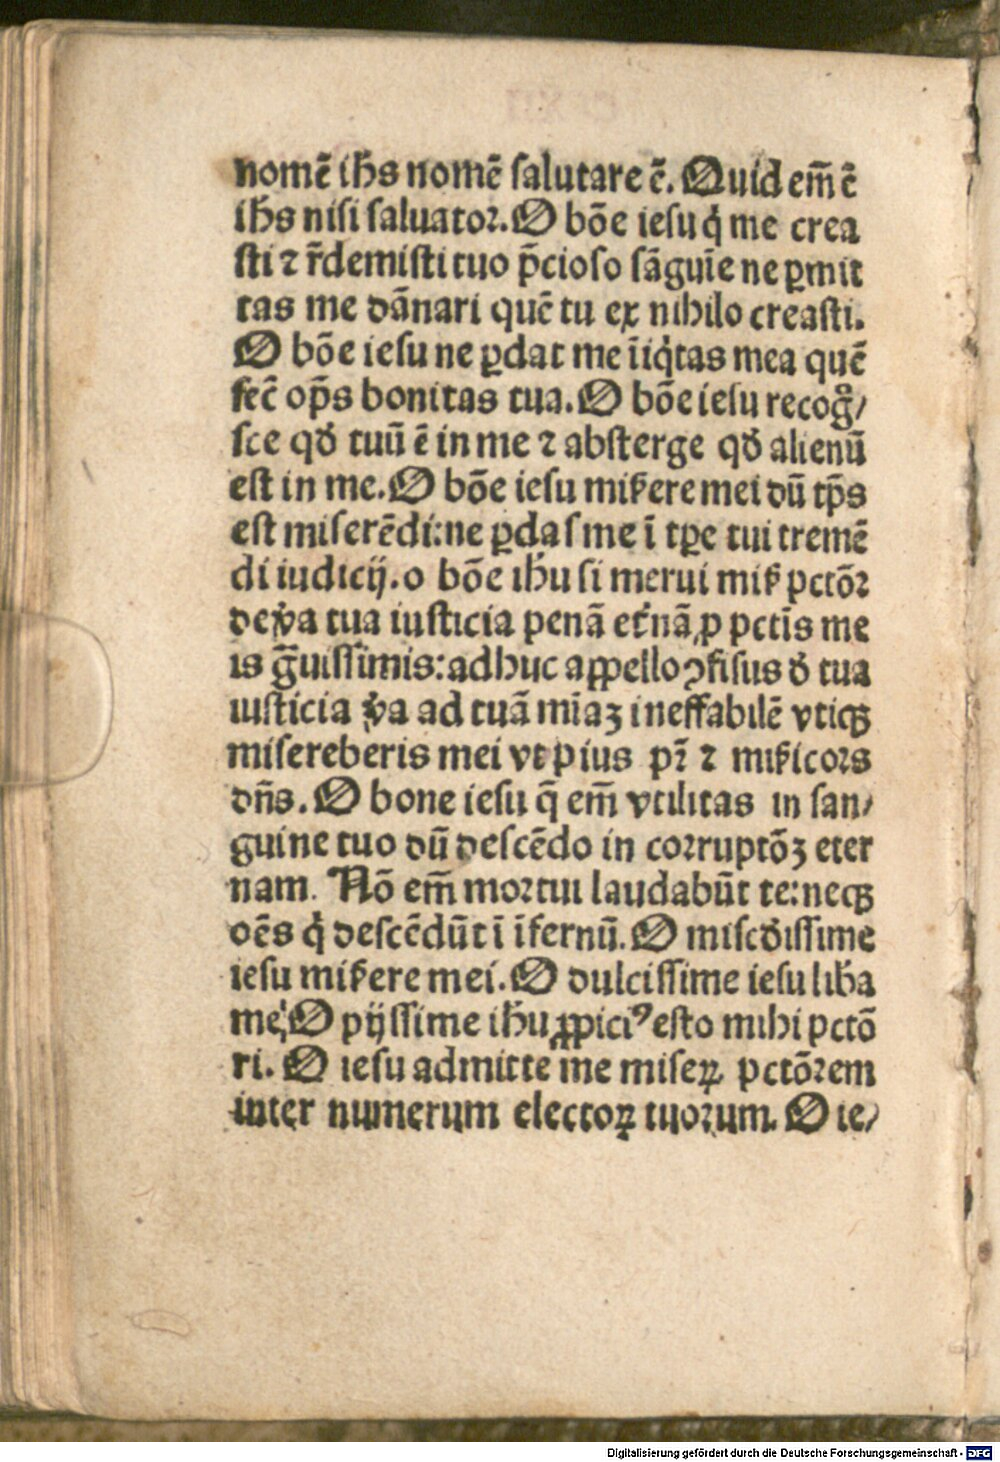 nomē ihs̄ nomē ſalutare ē. Quid em̄ ē
ihs̄ niſi ſaluatoꝛ. O bōe ieſu q́ me crea
ſti ⁊ r̄demiſti tuo p̄cioſo ſāguīe ne ꝑmit
tas me dānari quē tu ex nihilo creaſti.
O bōe ieſu ne ꝑdat me īiq́tas mea quē
fec̄ op̄s bonitas tua. O bōe ieſu recogͦ/
ſce qđ tuū ē in me ⁊ abſterge qđ alienū
eſt in me. O bōe ieſu miẜere mei dū tp̄s
eſt miſerēdi: ne ꝑdaſ me ī tꝑe tui tremē
di iudicij. o bōe ihū ſi merui miẜ pctōꝛ
de v̓a tua iuſticia penā et̓nā, ꝓ pctīs me
is ḡuiſſimis: adhuc aꝓpello ↄfiſus đ tua
iuſticia v̓a ad tuā mīaꝫ ineffabilē vtiqꝫ
miſereberis mei vt pius pr̄ ⁊ miẜicoꝛs
dn̄s. O bone ieſu q̄ em̄ vtilitas in ſan/
guine tuo dū deſcēdo in coꝛruptōꝫ eter
nam. Nō em̄ moꝛtui laudabūt te: neqꝫ
oēs q́ deſcēdūt ī īfernū. O miſcđiſſime
ieſu miẜere mei. O dulciſſime ieſu lib̓a
me. O pijſſime ihū ꝓpiciꝰ eſto mihi pctō
ri. O ieſu admitte me miſeꝝ pctōꝛem
inter numerum electoꝝ tuoꝛum. O ie/
Digitalisierung gefördert durch die Deutsche Forschungsgemeinschaft - DFG